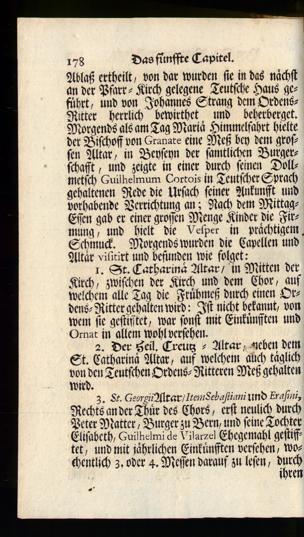 178 Das fünffte Capitel.
Ablaß ertheilt, von dar wurden sie in das nächst
an der Pfarr-Kirch gelegene Teutsche Haus ge-
führt, und von Johannes Strang dem Ordens-
Ritter herrlich bewirthet und beherberget.
Morgends als am Tag Mariä Himmelfahrt hielte
der Bischoff von Granate eine Meß bey dem gros-
sen Altar, in Beyseyn der samtlichen Burger-
schafft, und zeigte in einer durch seinen Doll-
metsch Guilhelmum Cortois in Teutscher Sprach
gehaltenen Rede die Ursach seiner Ankunfft und
vorhabende Verrichtung an; Nach dem Mittag-
Essen gab er einer grossen Menge Kinder die Fir-
mung, und hielt die Vesper in prächtigem
Schmuck. Morgends wurden die Capellen und
Altär visitirt und befunden wie folget:
1. St. Catharinä Altar/ in Mitten der
Kirch, zwischen der Kirch und dem Chor, auf
welchem alle Tag die Frühmeß durch einen Or-
dens-Ritter gehalten wird: Ist nicht bekannt, von
wem sie gestifftet, war sonst mit Einkünfften und
Ornat in allem wohl versehen.
2. Der Heil. Creutz-Altar, neben dem
St. Catharinä Altar, auf welchem auch täglich
von den Teutschen Ordens-Ritteren Meß gehalten
wird.
3. St. Georgii Altar/ Item Sebastiani und Erasmi,
Rechts an der Thür des Chors, erst neulich durch
Peter Matter, Burger zu Bern, und seine Tochter
Elisabeth, Guilhelmi de Vilarzel Ehegemahl gestiff-
tet, und mit jährlichen Einkünfften versehen, wo-
chentlich 3. oder 4. Messen darauf zu lesen, durch
ihren